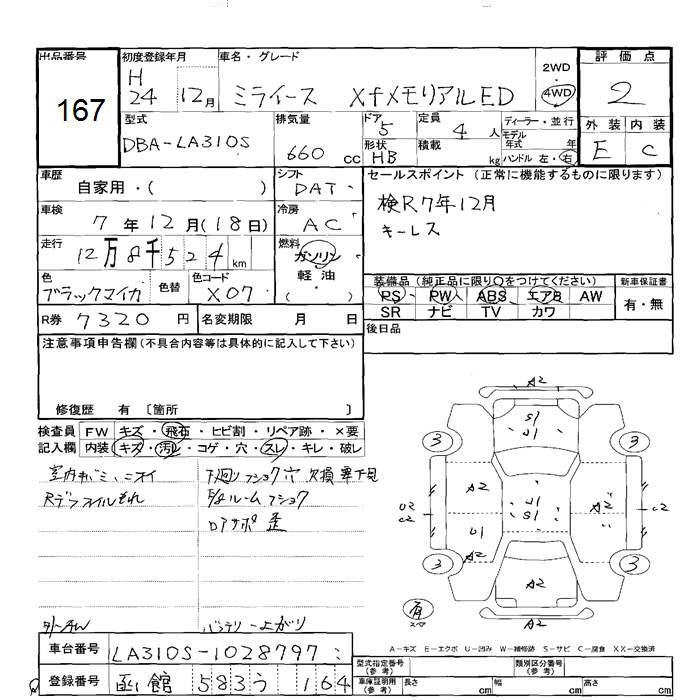 出品番号
167
初度登録年月 車名・グレード
H 24 12月 ミライース XfメモリアルED
2WD
4WD
評価点
2
外装 内装
E C
型式 排気量 ドア 定員 ディーラー・並行
DBA-LA310S 660 cc 5 4 人
形状 積載 モデル年式 年
HB kg ハンドル 左・右
車歴 シフト セールスポイント (正常に機能するものに限ります)
自家用・( ) DAT
検R7年12月
キーレス
車検 冷房
7年12月(18日) AC
走行 燃料
12万8千524km ガソリン
軽油
( )
色 色替 色コード
ブラックマイカ X07
装備品 (純正品に限り○をつけてください) 新車保証書
PS PW ABS エアB AW 有・無
SR ナビ TV カワ
R券 7320円 名変期限 月 日
後日品
注意事項申告欄(不具合内容等は具体的に記入して下さい)
修復歴 有 〔箇所 〕
検査員 FW キズ・飛石・ヒビ割・リペア跡・×要
記入欄 内装 キズ・汚れ・コゲ・穴・スレ・キレ・破レ
ニオイ
下廻りフショク穴 欠損
ルームフショク
バッテリー上がり
A2
S1
U1
3 3
A2 U1 A2
S1
U2
C2
C2
U1
A2
3 3
A2
A2
有
A−キズ E−エクボ U−凹み W−補修跡 S−サビ C−腐食 XX−交換済
車台番号 LA310S-1028797
登録番号 函館 583 う 164
型式指定番号(参考) 類別区分番号(参考)
車庫証明用(参考) 長さ cm 幅 cm 高さ cm